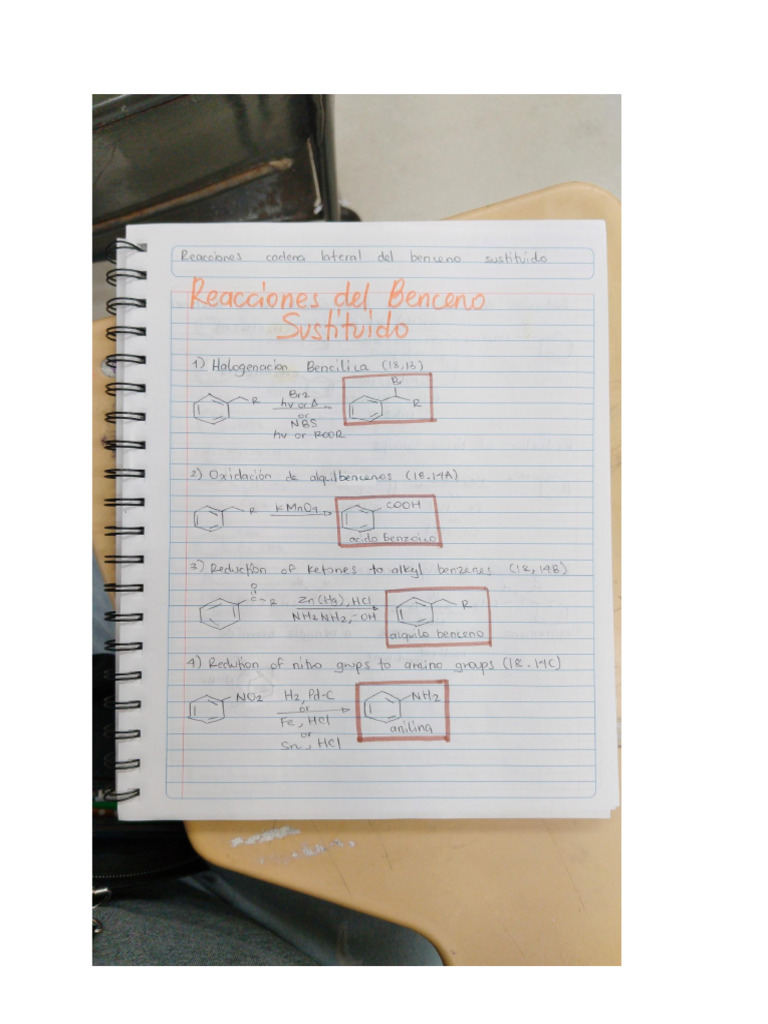 Reacciones cadena lateral del benceno sustituido
Reacciones del Benceno
Sustituido
1) Halogenacion Bencilica (18,13)
R
Br2
hv or Δ
or
NBS
hv or ROOR
Br
R
2) Oxidación de alquilbencenos (18.14A)
R
KMnO4
COOH
acido benzoico
3) Reduction of ketones to alkyl benzenes (18,14B)
O
C-R
Zn(Hg), HCl
NH2NH2, -OH
R
alquilo benceno
4) Redution of nitro grups to amino groups (18.14C)
NO2
H2, Pd-C
or
Fe, HCl
or
Sn, HCl
NH2
anilina